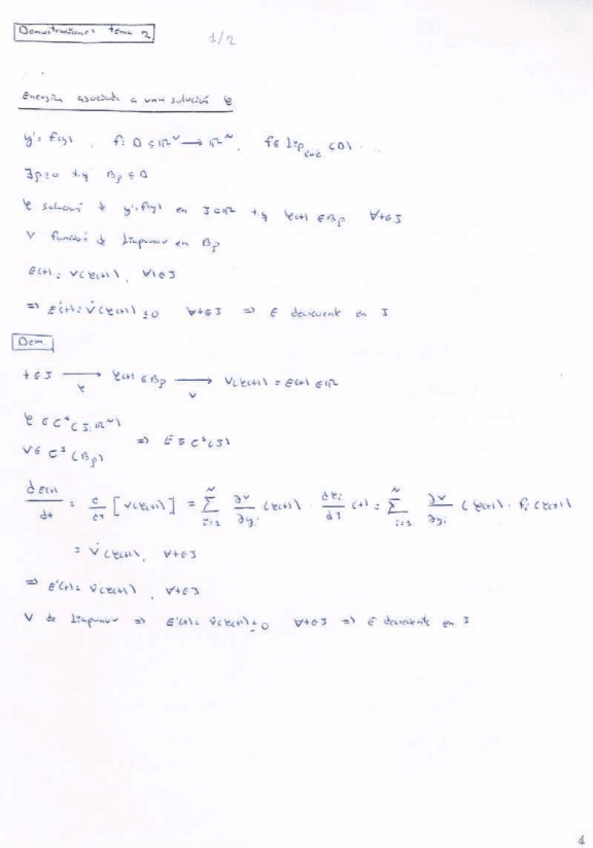 Demostraciones tema 2
1/2
Energía asociada a una solución φ
y' = f(y), f: Ω ⊆ ℝ^N → ℝ^N, f ∈ Lip_loc(Ω)
∃ρ>0 t.q B̄ρ ⊆ Ω
φ solución de y'=f(y) en J⊂ℝ t.q φ(t) ∈ Bρ ∀t∈J
V función de Liapunov en Bρ
E(t) = V(φ(t)), ∀t∈J
=> E'(t) = V̇(φ(t)) ≤ 0 ∀t∈J => E decreciente en J
Dem.
t∈J →(φ) φ(t) ∈ Bρ →(V) V(φ(t)) = E(t) ∈ ℝ
φ ∈ C¹(J; ℝ^N)
V ∈ C¹(Bρ) => E ∈ C¹(J)
dE(t)/dt = d/dt [V(φ(t))] = Σ_{i=1}^N ∂V/∂y_i (φ(t)) · dφ_i/dt (t) = Σ_{i=1}^N ∂V/∂y_i (φ(t)) · f_i(φ(t))
= V̇(φ(t)), ∀t∈J
=> E'(t) = V̇(φ(t)), ∀t∈J
V de Liapunov => E'(t) = V̇(φ(t)) ≤ 0 ∀t∈J => E decreciente en J
4